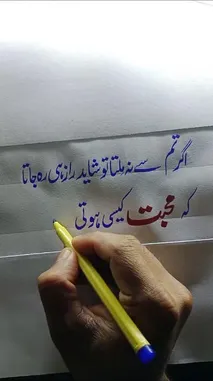 اگر تم سے نہ ملتا تو شاید راز ہی رہ جاتا
کہ محبت کیسی ہوتی